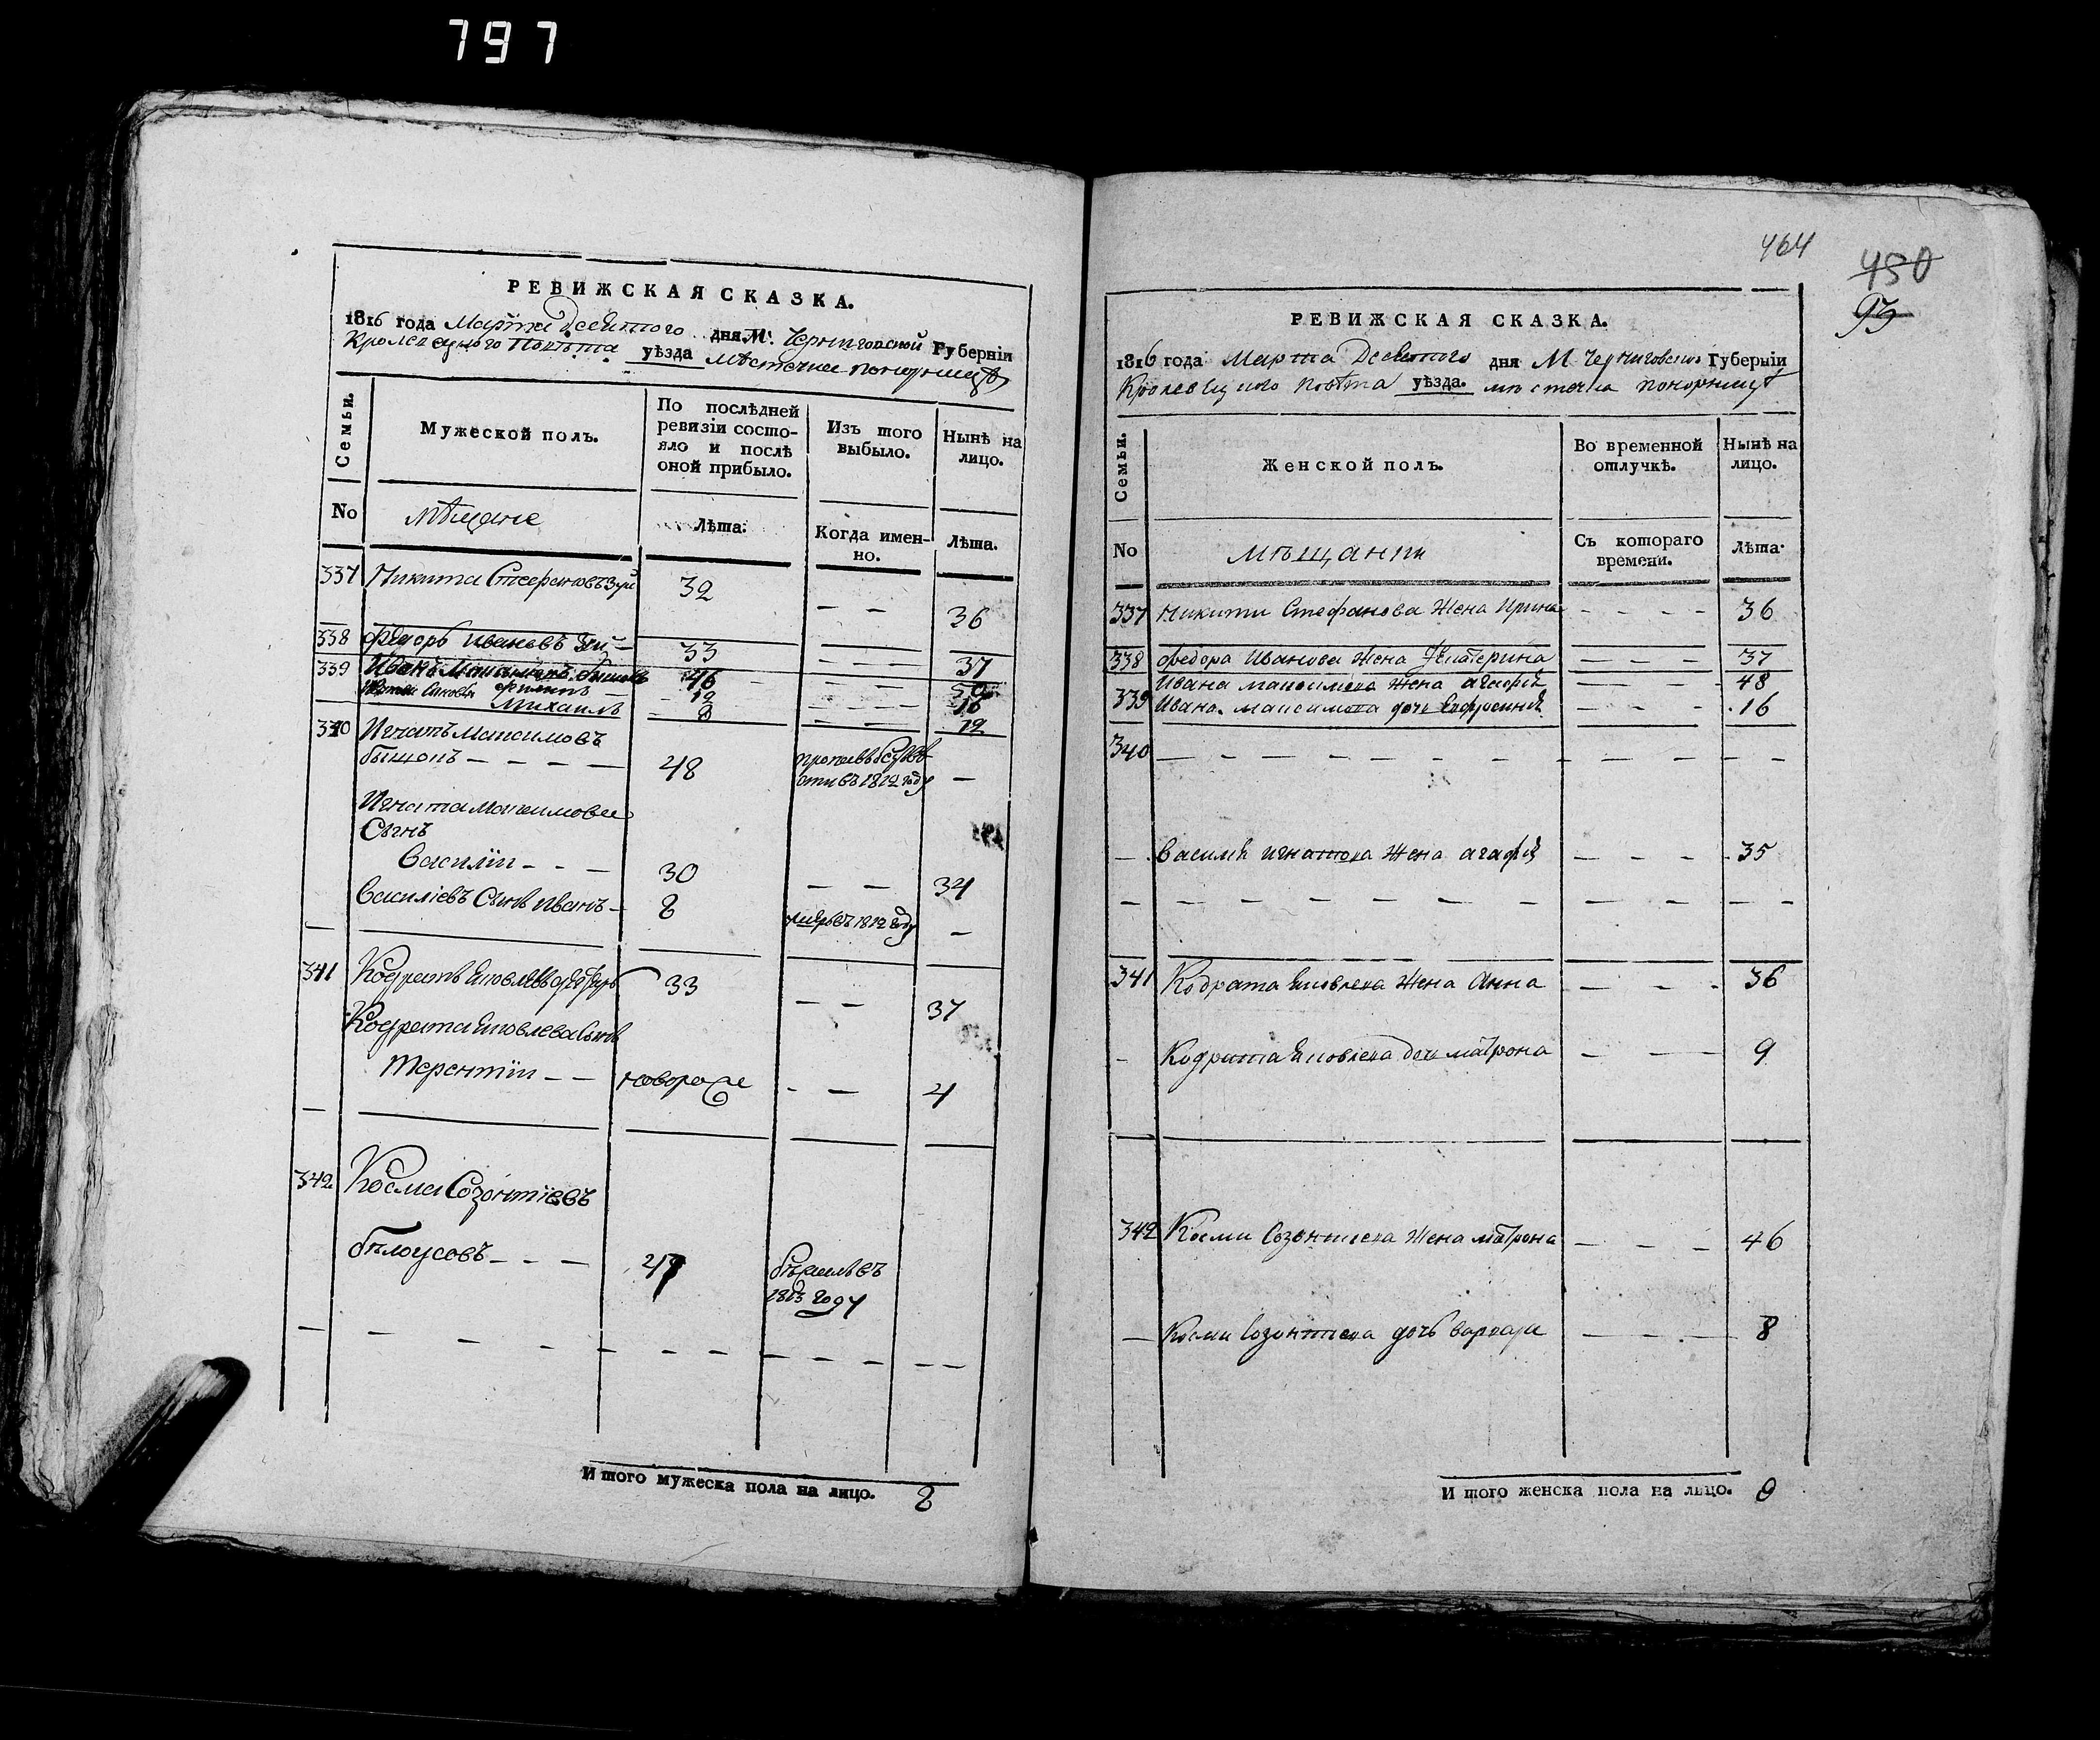 797
РЕВИЖСКАЯ СКАЗКА.
1816 года Марта Десятого дня М. Черниговской Губерніи
Кролевецкого Повѣта уѣзда мѣстечка понорницѣ
Семьи.
Мужеской полъ.
По послѣдней ревизіи состояло и послѣ оной прибыло.
Изъ того выбыло.
Нынѣ на лицо.
No
мѣщане
Лѣта.
Когда именно.
Лѣта.
337 Никита Стефановъ Зуй 32 — — 36
338 Федоръ Ивановъ Зуй — 33 — — — 37
339 Иванъ Максимовъ 46 — — — 50
Сыновья Филипъ — 12 — — — 16
Михаилъ 8 — — — 12
340 Игнатъ Максимовъ
— — — — 48 в 1812 году —
Игната Максимова
Сынъ
Василіи — — — 30 — — 34
Василіевъ Сынъ Иванъ — 8 умеръ въ 1812 году —
341 Кодратъ Яковлевъ 33 — — 37
Кодрата Яковлева Сынъ
Терентіи — — новорож — — 4
342 Косма Созонтіевъ
бѣлоусовъ — — — бѣжалъ въ
1813 году
И того мужеска пола на лицо. 8
464
450
93
РЕВИЖСКАЯ СКАЗКА.
1816 года Марта Десятого дня М Черниговской Губерніи
Кролевецкого Повѣта уѣзда. мѣстечка понорницѣ
Семьи.
Женской полъ.
Во временной отлучкѣ.
Нынѣ на лицо.
No
мѣщанки
Съ котораго времени.
Лѣта.
337 Никиты Стефанова Жена Ирина — — — — 36
338 Федора Иванова Жена Екатерина — — — 37
339 Ивана Максимова Жена агафія — — — 48
Ивана Максимова дочь Евфросинія — — — 16
340 — — — — — — — — — — — —
— Василія игнатова Жена агафія — — — 35
— — — — — — — — — — —
341 Кодрата Яковлева Жена Анна — — — 36
— Кодрата Яковлева дочь матрона — — — 9
342 Космы Созонтиева Жена матрона — — — 46
— Космы Созонтиева дочь варвара — — — 8
И того женска пола на лицо. 9